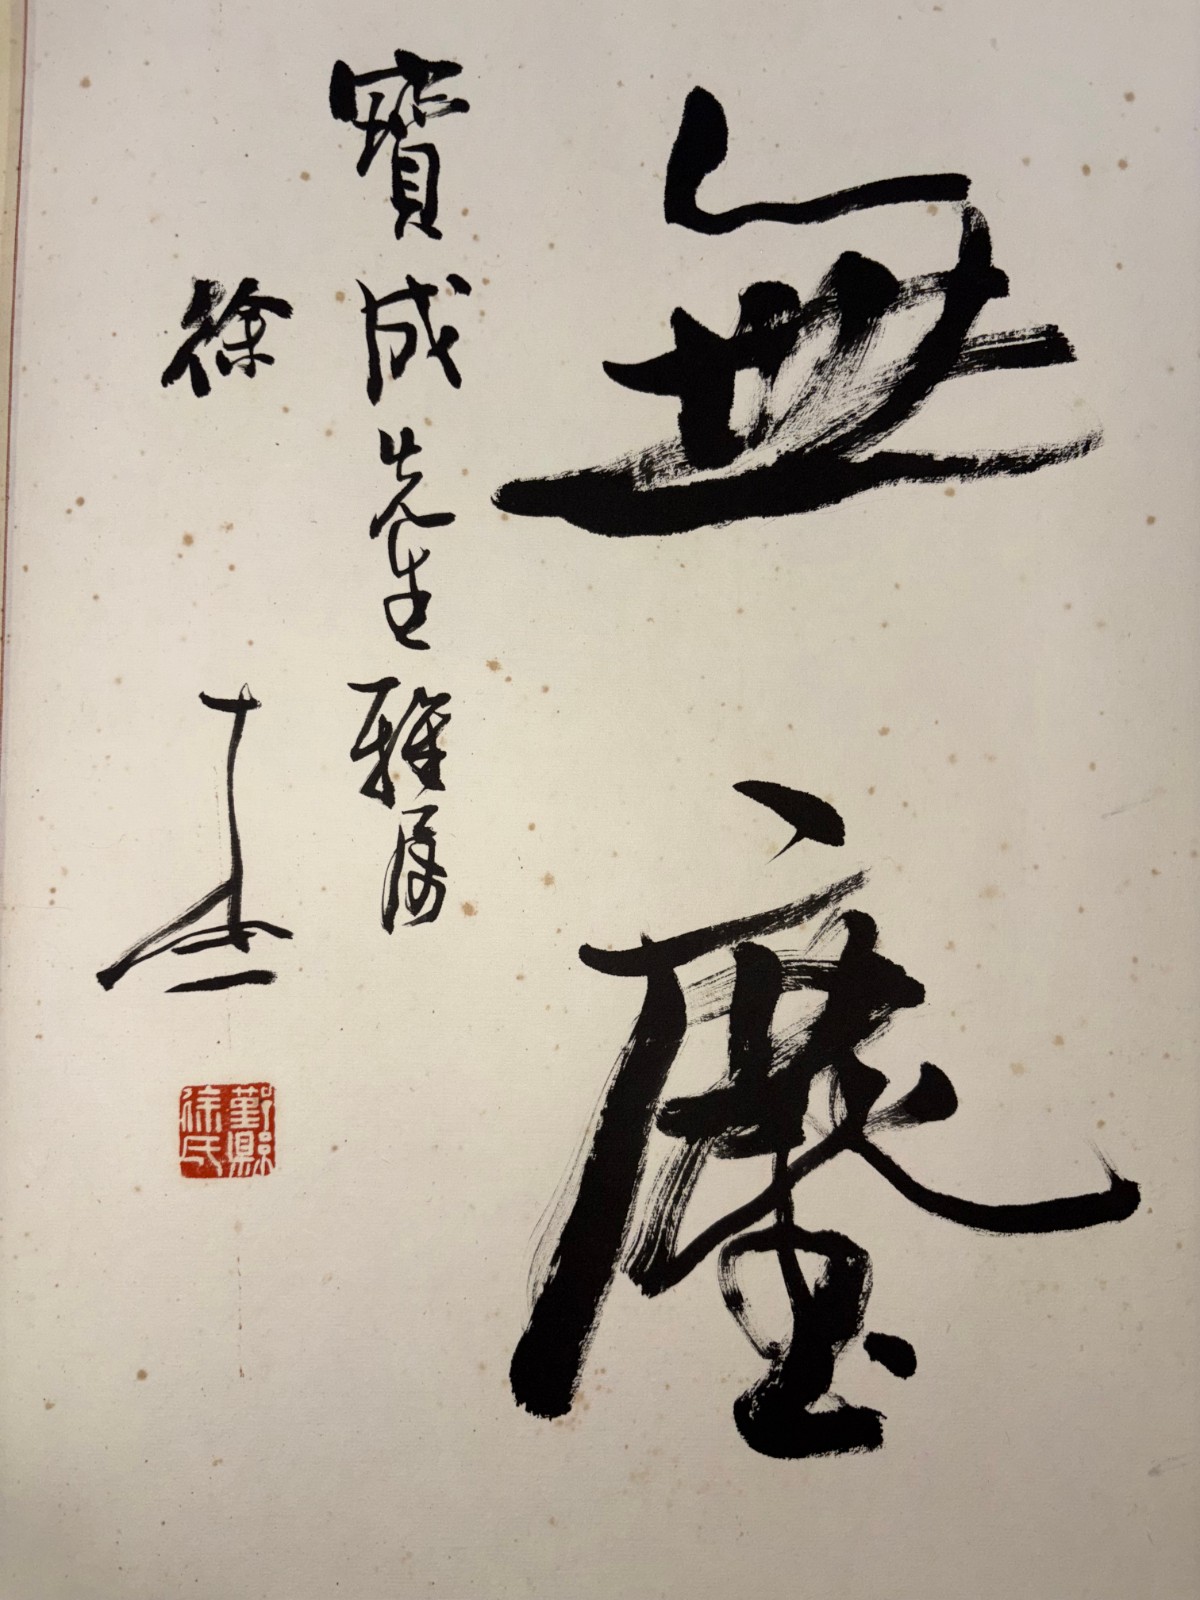 無塵
寶成先生雅屬
徐
鄞縣
徐氏